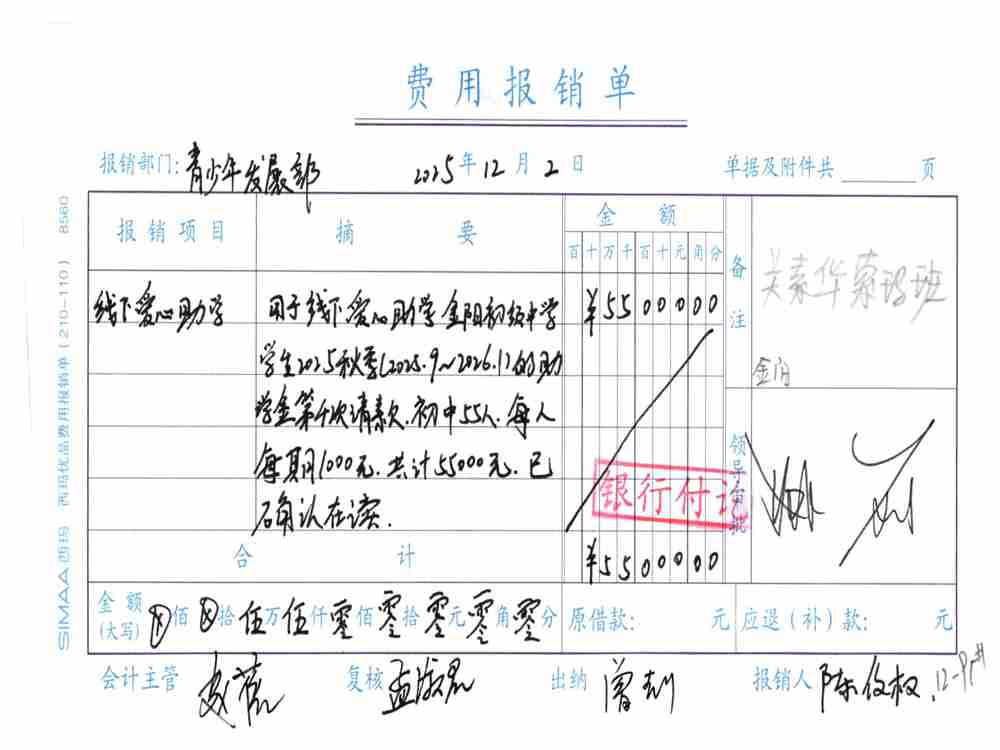 费用报销单
报销部门: 青少年发展部 2025年12月2日 单据及附件共 页
报销项目 摘要 金额 备注
百十万千百十元角分
吴素华索玛班
金阳
线下爱心助学 用于线下爱心助学金阳初级中学 ¥5500000
学生2025秋季(2025.9~2026.1)的助
学金第 次请款.初中55人.每人
每期1000元.共计55000元.已
确认在读.
领导审批
银行付讫
合计 ¥5500000
金额(大写) ⊗佰⊗拾伍万伍仟零佰零拾零元零角零分 原借款: 元 应退(补)款: 元
会计主管 复核 出纳 报销人 陈俊权
SIMAA 西玛 西玛优品费用报销单(210-110) 8560